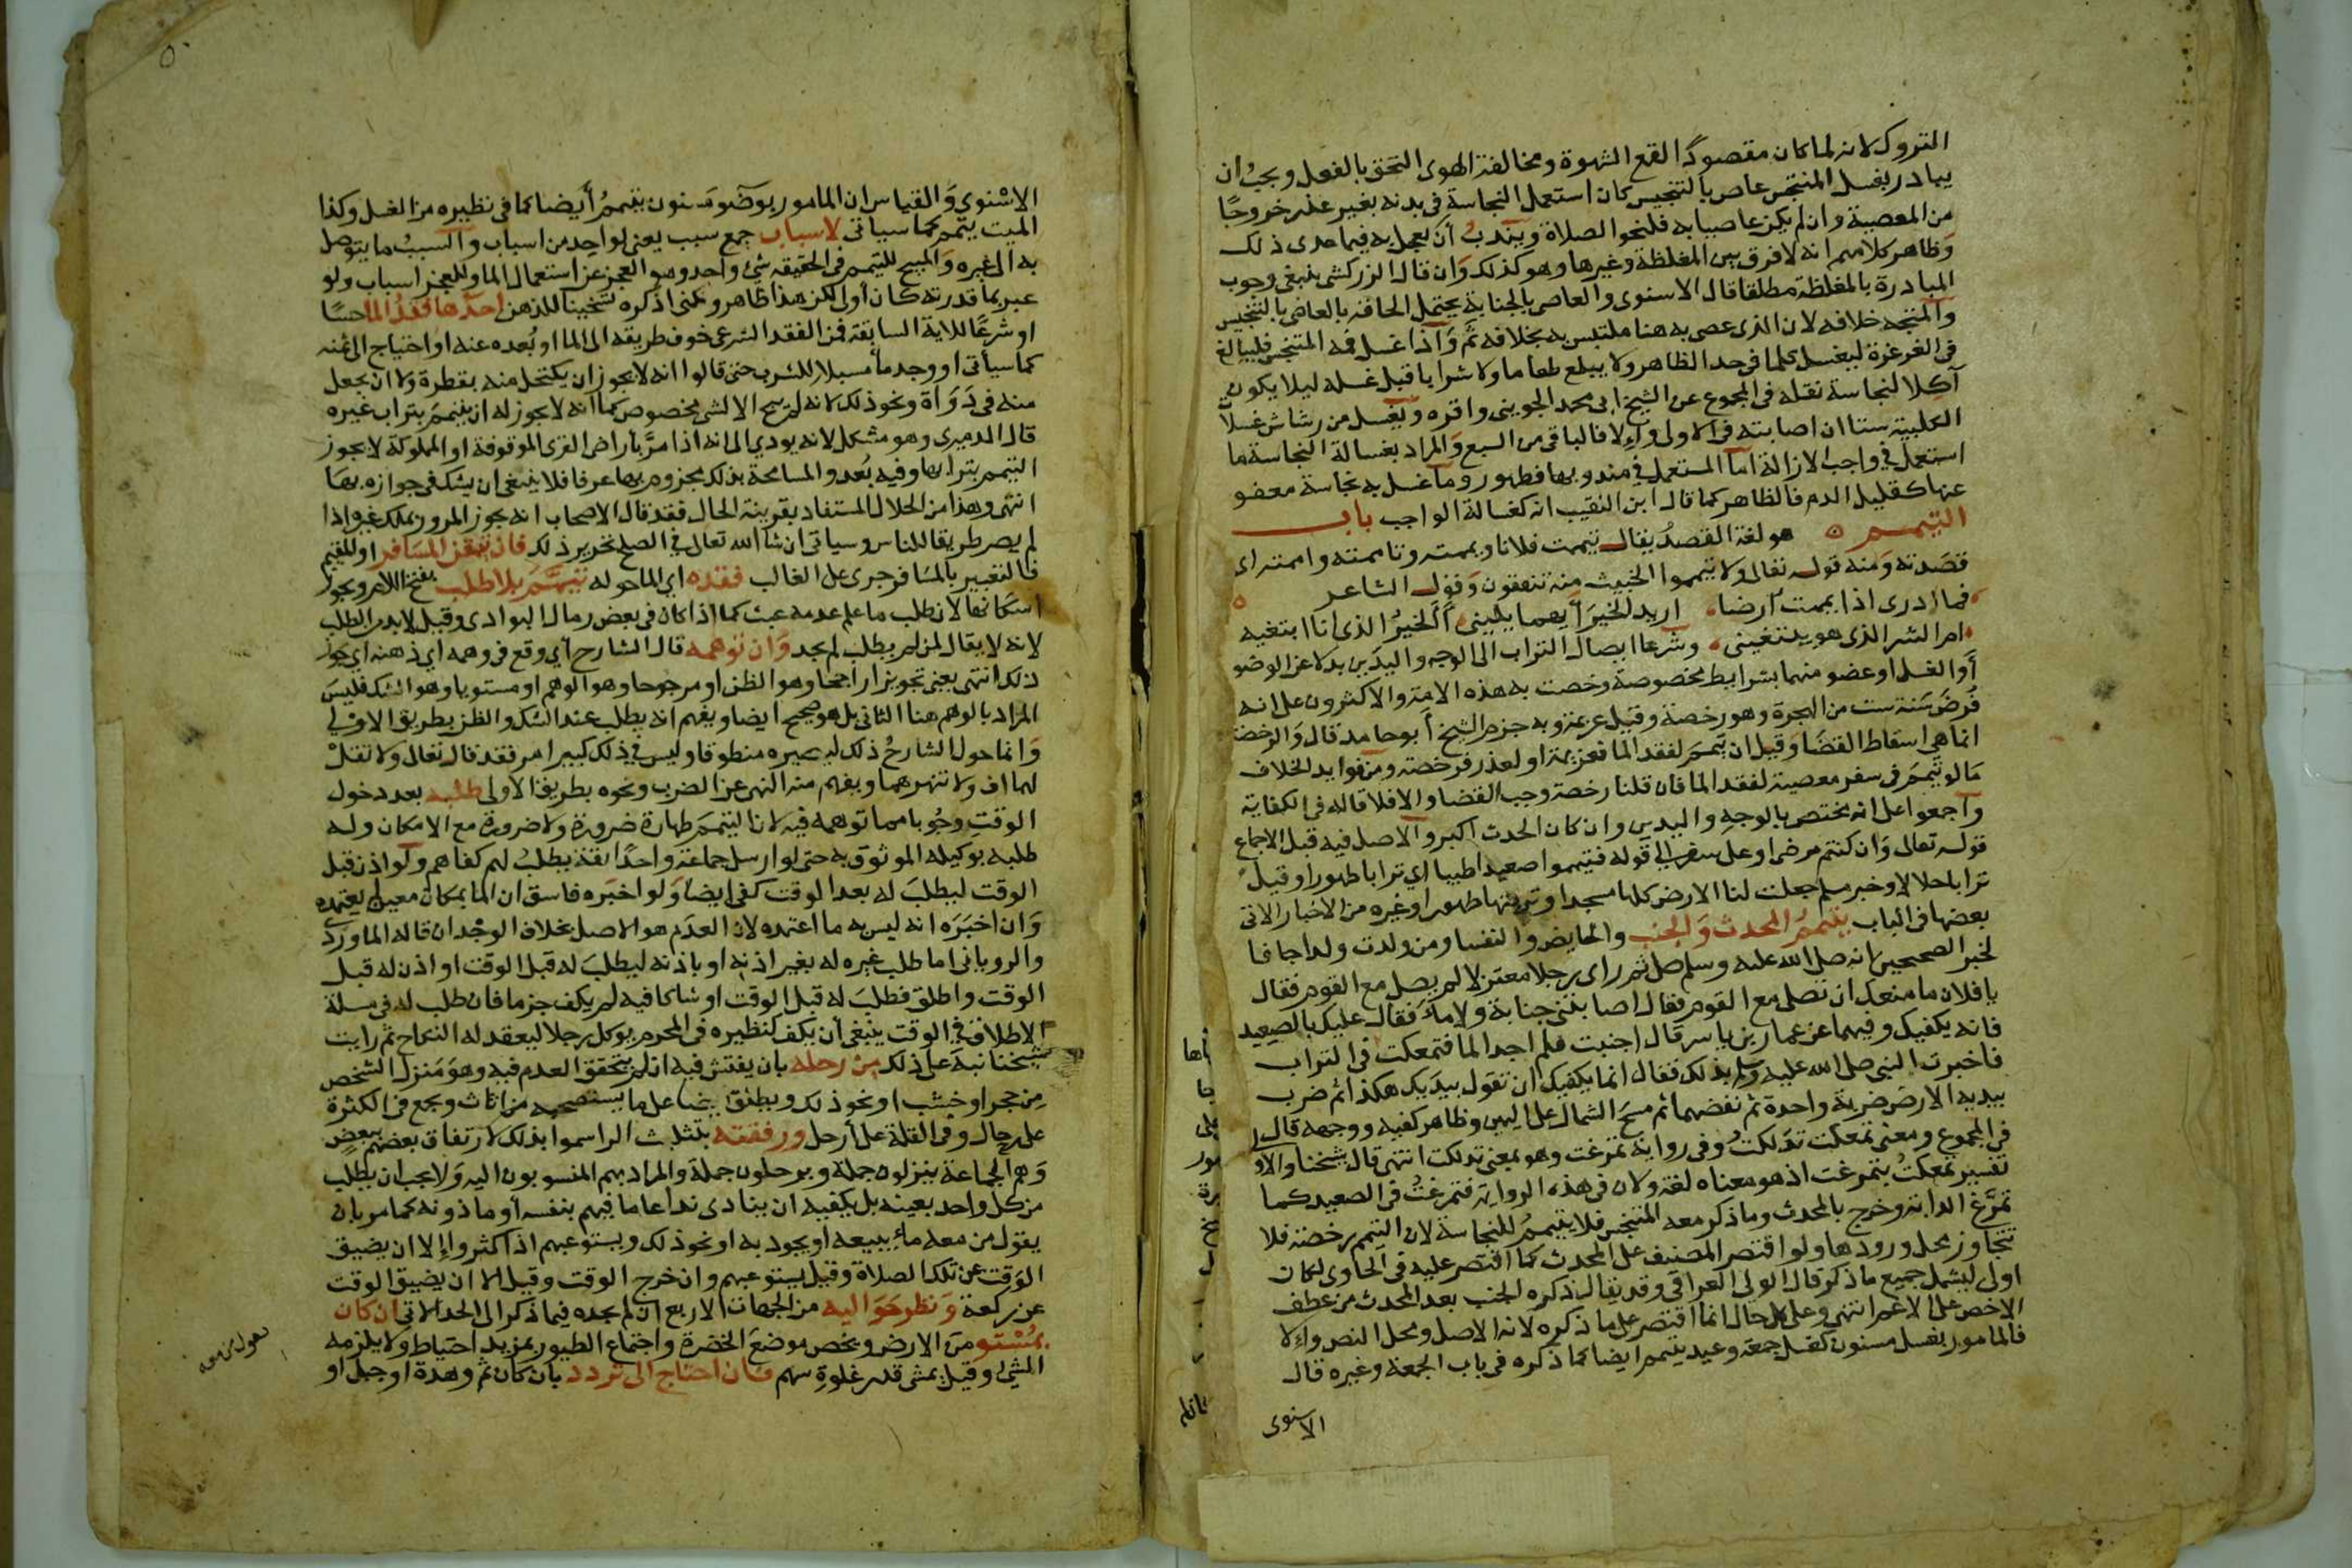 التروك لانه لما كان مقصودا لقمع الشهوة ومخالفة الهوى التحق بالفعل ويجب ان
يبادر بغسل المتنجس عاص بالتنجيس كان استعمل النجاسة في بدنه بغير عذر خروجا
من المعصية وان لم يكن عاصيا به فلنحو الصلاة ويندب أن يعجل به فيما عدى ذلك
وظاهر كلامهم انه لا فرق بين المغلظة وغيرها وهو كذلك وان قال الزركشي ينبغي وجوب
المبادرة بالمغلظة مطلقا قال الاسنوى والعاصى بالجنابة يحتمل الحاقه بالعاصى بالتنجيس
والمتجه خلافه لان الذى عصى به هنا متلبس به بخلافه ثم واذا غسل فمه المتنجس فليبالغ
في الغرغرة ليغسل كلما في حد الظاهر ولا يبلع طعاما ولا شرابا قبل غسله ليلا يكون
آكلا لنجاسة نقله في المجموع عن الشيخ ابى محمد الجوينى واقره ويغسل من رشاش غسلات
الكلبية ستا ان اصابته في الاولى وإلا فالباقي من السبع والمراد بغسالة النجاسة ما
استعمل في واجب الازالة اما المستعمل في مندوبها فطهور وما غسل به نجاسة معفو
عنها كقليل الدم فالظاهر كما قال ابن النقيب انه كغسالة الواجب باب
التيمم هو لغة القصد يقال تيممت فلانا ويممته وتاممته واممته اى
قصدته ومنه قوله تعالى ولا تيمموا الخبيث منه تنفقون وقول الشاعر
فما أدرى اذا يممت أرضا اريد الخير أيهما يلينى أألخير الذى انا ابتغيه
ام الشر الذى هو يبتغينى وشرعا ايصال التراب الى الوجه واليدين بدلا عن الوضو
أو الغسل او عضو منهما بشرايط مخصوصة وخصت به هذه الامة والاكثرون على انه
فرض سنة ست من الهجرة وهو رخصة وقيل عزيمة وبه جزم الشيخ أبو حامد قال والرخصة
انما هي اسقاط القضا وقيل ان تيمم لفقد الما فعزيمة او لعذر فرخصة ومن فوايد الخلاف
ما لو تيمم في سفر معصية لفقد الما فان قلنا رخصة وجب القضا والا فلا قاله في الكفاية
واجمعوا على انه يختص بالوجه واليدين وان كان الحدث اكبر والاصل فيه قبل الاجماع
قوله تعالى وان كنتم مرضى او على سفر الى قوله فتيمموا صعيدا طيبا اي ترابا طهورا وقيل
ترابا حلالا وخبر مسلم جعلت لنا الارض كلها مسجدا وتربتها طهورا وغيره من الاخبار الاتي
بعضها في الباب يتيمم المحدث والجنب والحايض والنفسا ومن ولدت ولدا جافا
لخبر الصحيحين انه صلى الله عليه وسلم صلى ثم راى رجلا معتزلا لم يصل مع القوم فقال
يا فلان ما منعك ان تصلى مع القوم فقال اصابتنى جنابة ولا ماء فقال عليك بالصعيد
فانه يكفيك وفيهما عن عمار بن ياسر قال اجنبت فلم اجد الما فتمعكت في التراب
فاخبرت النبي صلى الله عليه وسلم بذلك فقال انما يكفيك ان تقول بيديك هكذا ثم ضرب
بيديه الارض ضربة واحدة ثم نفضهما ثم مسح الشمال على اليمين وظاهر كفيه ووجهه قال
في المجموع ومعنى تمعكت تدلكت وفي رواية تمرغت وهو بمعنى تدلكت انتهى قال شيخنا والاولى
تفسير تمعكت بتمرغت اذ هو معناه لغة ولان في هذه الرواية فتمرغت في الصعيد كما
تمرغ الدابة وخرج بالمحدث وما ذكر معه المتنجس فلا يتيمم للنجاسة لان التيمم رخصة فلا
تتجاوز محل ورودها ولو اقتصر المصنف على المحدث كما اقتصر عليه في الحاوى لكان
اولى ليشمل جميع ما ذكر قال الولى العراقى وقد يقال ذكره الجنب بعد المحدث من عطف
الاخص على الاعم انتهى وعلى كل حال انما اقتصر على ما ذكره لانه الاصل ومحل النص وإلا
فالمامور بغسل مسنون كغسل جمعة وعيد يتيمم ايضا كما ذكره في باب الجمعة وغيره قال
الاسنوى
الاسنوى والقياس ان المامور بوضو مسنون يتيمم أيضا كما في نظيره من الغسل وكذا
الميت ييمم كما سياتى لاسباب جمع سبب يعنى لواحد من اسباب والسبب ما يتوصل
به الى غيره والمبيح للتيمم في الحقيقة شئ واحد وهو العجز عن استعمال الما وللعجز اسباب ولو
عبر بما قدرته كان أولى لكن هذا ظاهر ولكنى اذكره تشحيذا للذهن احدها فقد الما حسا
او شرعا للاية السابقة فمن الفقد الشرعى خوف طريقه الى الما او بعده عنه او احتياج الى ثمنه
كما سيأتى او وجد ماء مسبلا للشرب حتى قالوا انه لا يجوز ان يكتحل منه بقطرة ولا ان يجعل
منه في دواة ونحو ذلك لانه لم يبح الا لشى مخصوص كما انه لا يجوز له ان يتيمم بتراب غيره
قال الدميرى وهو مشكل لانه يودي الى انه اذا مر بأراضى القرى الموقوفة او المملوكة لا يجوز
التيمم بترابها وفيه بعد والمسامحة بذلك مجزوم بها عرفا فلا ينبغى ان يشك في جوازه بها
انتهى وهذا من الحلال المستفاد بقرينة الحال فقد قال الاصحاب انه يجوز المرور بملك غيره اذا
لم يصر طريقا للناس وسياتى ان شا الله تعالى في الصلح تحرير ذلك فان تيقن المسافر او المقيم
فالتعبير بالمسافر جرى على الغالب فقده اي الما حوله تيمم بلا طلب بفتح اللام ويجوز
اسكانها لان طلب ما علم عدمه عبث كما اذا كان في بعض رمال البوادى وقيل لا بد من الطلب
لانه لا يقال لمن لم يطلب لم يجد وان توهمه قال الشارح أي وقع في وهمه اي ذهنه اي جوز
ذلك انتهى يعنى تجويزا راجحا وهو الظن او مرجوحا وهو الوهم او مستويا وهو الشك فليس
المراد بالوهم هنا الثانى بل هو صحيح ايضا ويفهم انه يطلب عند الشك والظن بطريق الاولى
وانما حول الشارح ذلك ليصيره منطوقا وليس في ذلك كبير امر فقد قال تعالى ولا تقل
لهما اف ولا تنهرهما ويفهم منه النهى عن الضرب ونحوه بطريق الاولى طلبه بعد دخول
الوقت وجوبا مما توهمه فيه لان التيمم طهارة ضرورة ولا ضرورة مع الامكان وله
طلبه بوكيله الموثوق به حتى لو ارسل جماعة واحدا ثقة يطلب لهم كفاهم ولو اذن قبل
الوقت ليطلب له بعد الوقت كفى ايضا ولو اخبره فاسق ان الما بمكان معين لم يعتمده
وان اخبره انه ليس به ما اعتمده لان العدم هو الاصل بخلاف الوجدان قاله الماوردى
والرويانى اما طلب غيره له بغير اذنه او باذنه ليطلب له قبل الوقت او اذن له قبل
الوقت واطلق فطلب له قبل الوقت او شاكا فيه لم يكف جزما فان طلب له في مسلة
الاطلاق في الوقت ينبغى أن يكفى كنظيره في المحرم يوكل رجلا ليعقد له النكاح ثم رايت
شيخنا نبه على ذلك من رحله بان يفتش فيه ان لم يتحقق العدم فيه وهو منزل الشخص
من حجر او خشب او نحو ذلك ويطلق ايضا على ما يستصحبه من اثاث ويجمع في الكثرة
على رحال وفي القلة على أرحل ورفقته بتثليث الرا سموا بذلك لارتفاق بعضهم ببعض
وهم الجماعة ينزلون جملة ويرحلون جملة والمراد بهم المنسوبون اليه ولا يجب ان يطلب
من كل واحد بعينه بل يكفيه ان ينادى نداء عاما فيهم بنفسه أو ماذونه كما مر بان
يقول من معه ماء يبيعه او يجود به او نحو ذلك ويستوعبهم اذا كثروا إلا ان يضيق
الوقت عن تلك الصلاة وقيل يستوعبهم وان خرج الوقت وقيل الا ان يضيق الوقت
عن ركعة ونظر حواليه من الجهات الاربع ان لم يجده فيما ذكر الى الحد الاتى ان كان
بمستو من الارض ويخص موضع الخضرة واجتماع الطيور بمزيد احتياط ولا يلزمه
المشى وقيل يمشى قدر غلوة سهم فان احتاج الى تردد بان كان ثم وهدة او جبل او